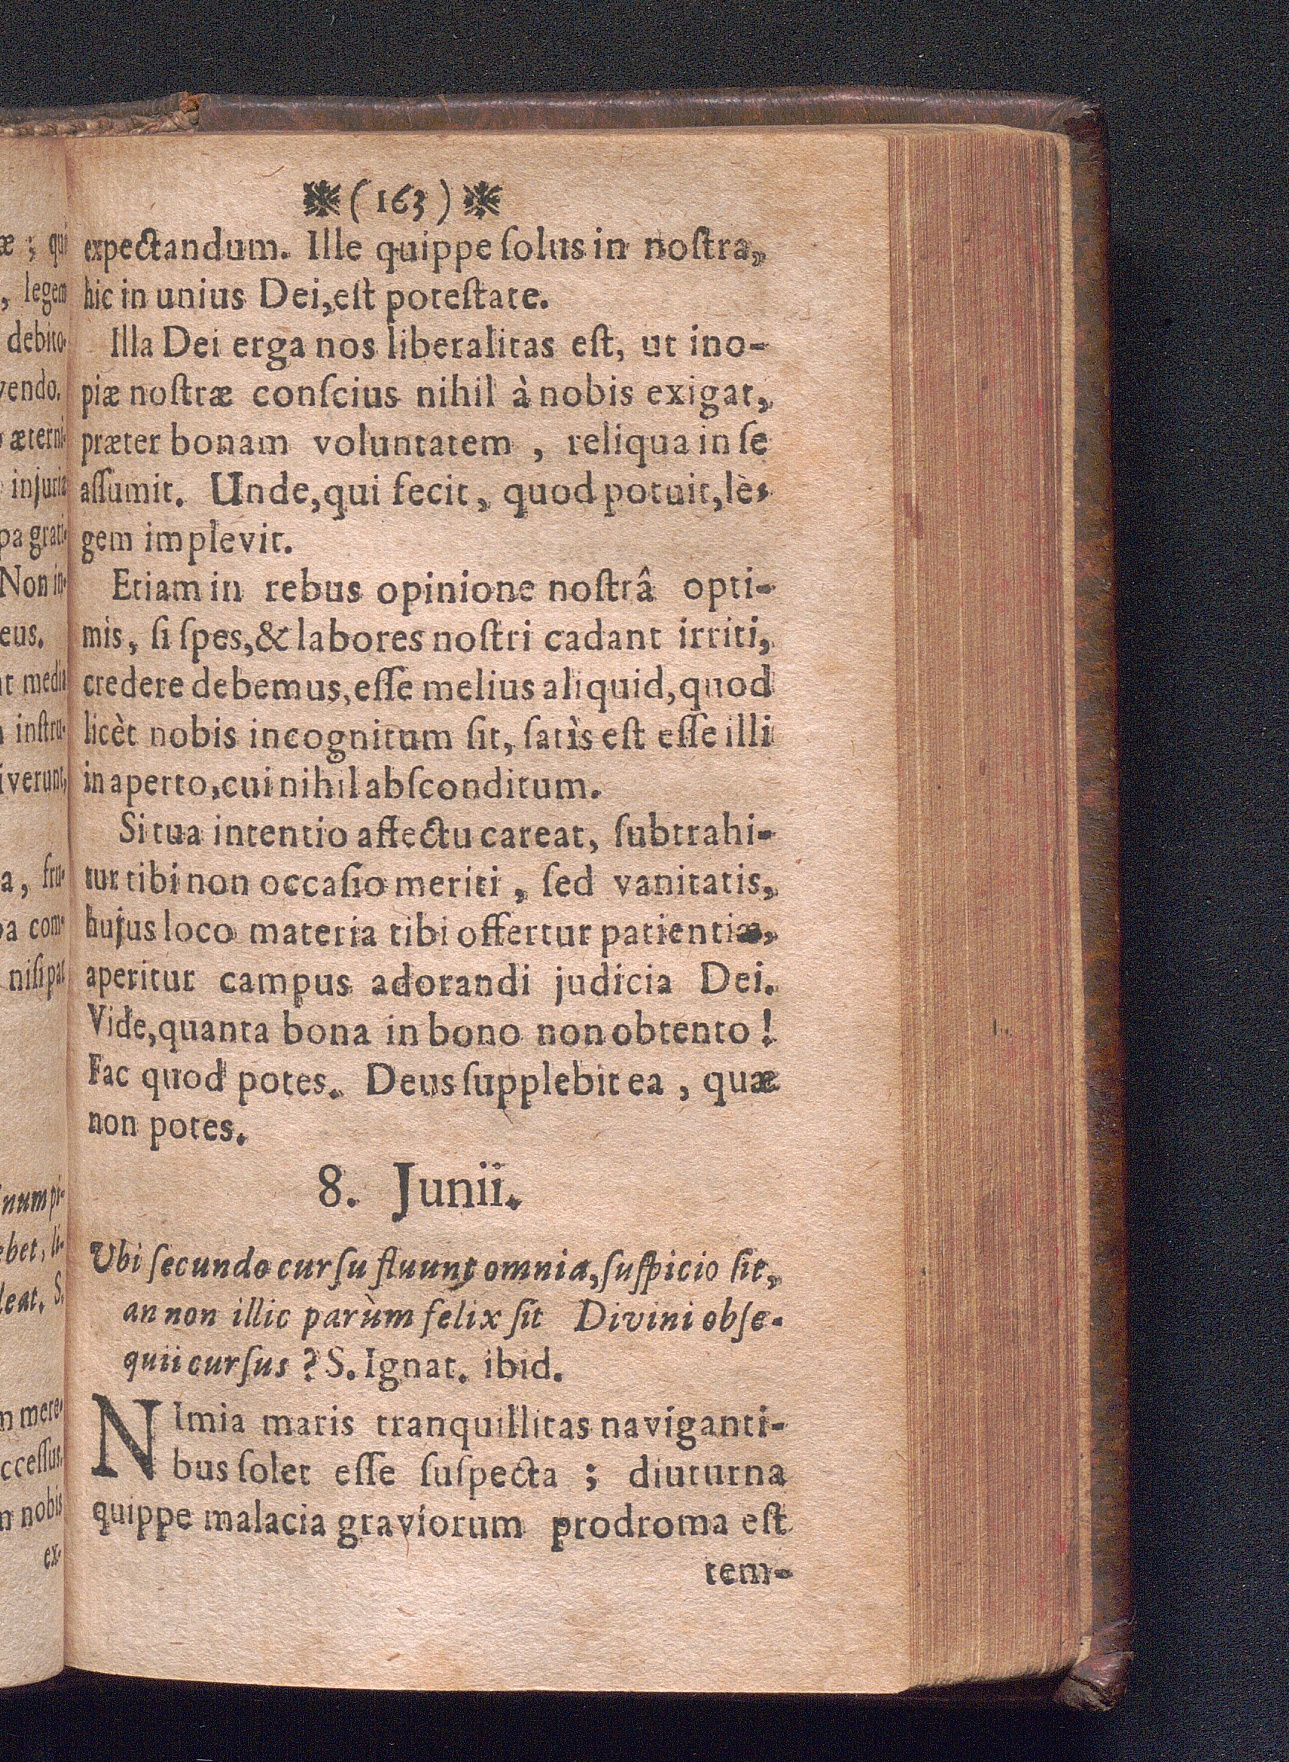 ❋ (163) ❋
expectandum. Ille quippe ſolus in noſtra,
hic in unius Dei, eſt poteſtate.
Illa Dei erga nos liberalitas eſt, ut ino-
piæ noſtræ conſcius nihil à nobis exigat,
præter bonam voluntatem, reliqua in ſe
aſſumit. Unde, qui fecit, quod potuit, lè-
gem implevit.
Etiam in rebus opinione noſtrâ opti-
mis, ſi ſpes, & labores noſtri cadant irriti,
credere debemus, eſſe melius aliquid, quod
licèt nobis incognitum ſit, ſatìs eſt eſſe illi
in aperto, cui nihil abſconditum.
Si tua intentio affectu careat, ſubtrahi-
tur tibi non occaſio meriti, ſed vanitatis,
hujus loco materia tibi offertur patientiæ,
aperitur campus adorandi judicia Dei.
Vide, quanta bona in bono non obtento!
Fac quod potes. Deus ſupplebit ea, quæ
non potes.
8. Junii.
Ubi ſecundo curſu fluunt omnia, ſuſpicio ſit,
an non illic parùm felix ſit Divini obſe-
quii curſus? S. Ignat. ibid.
NImia maris tranquillitas naviganti-
bus ſolet eſſe ſuſpecta; diuturna
quippe malacia graviorum prodroma eſt
tem-
æ; qui
, legem
debito-
vendo.
æterni-
injuria
pa grati-
Non in-
eus.
medi
inſtru-
iverunt,
a, fru-
pa com-
niſi pa
num pi-
ebet, li-
leat. S.
m mere-
cceſſus.
nobis
ex-